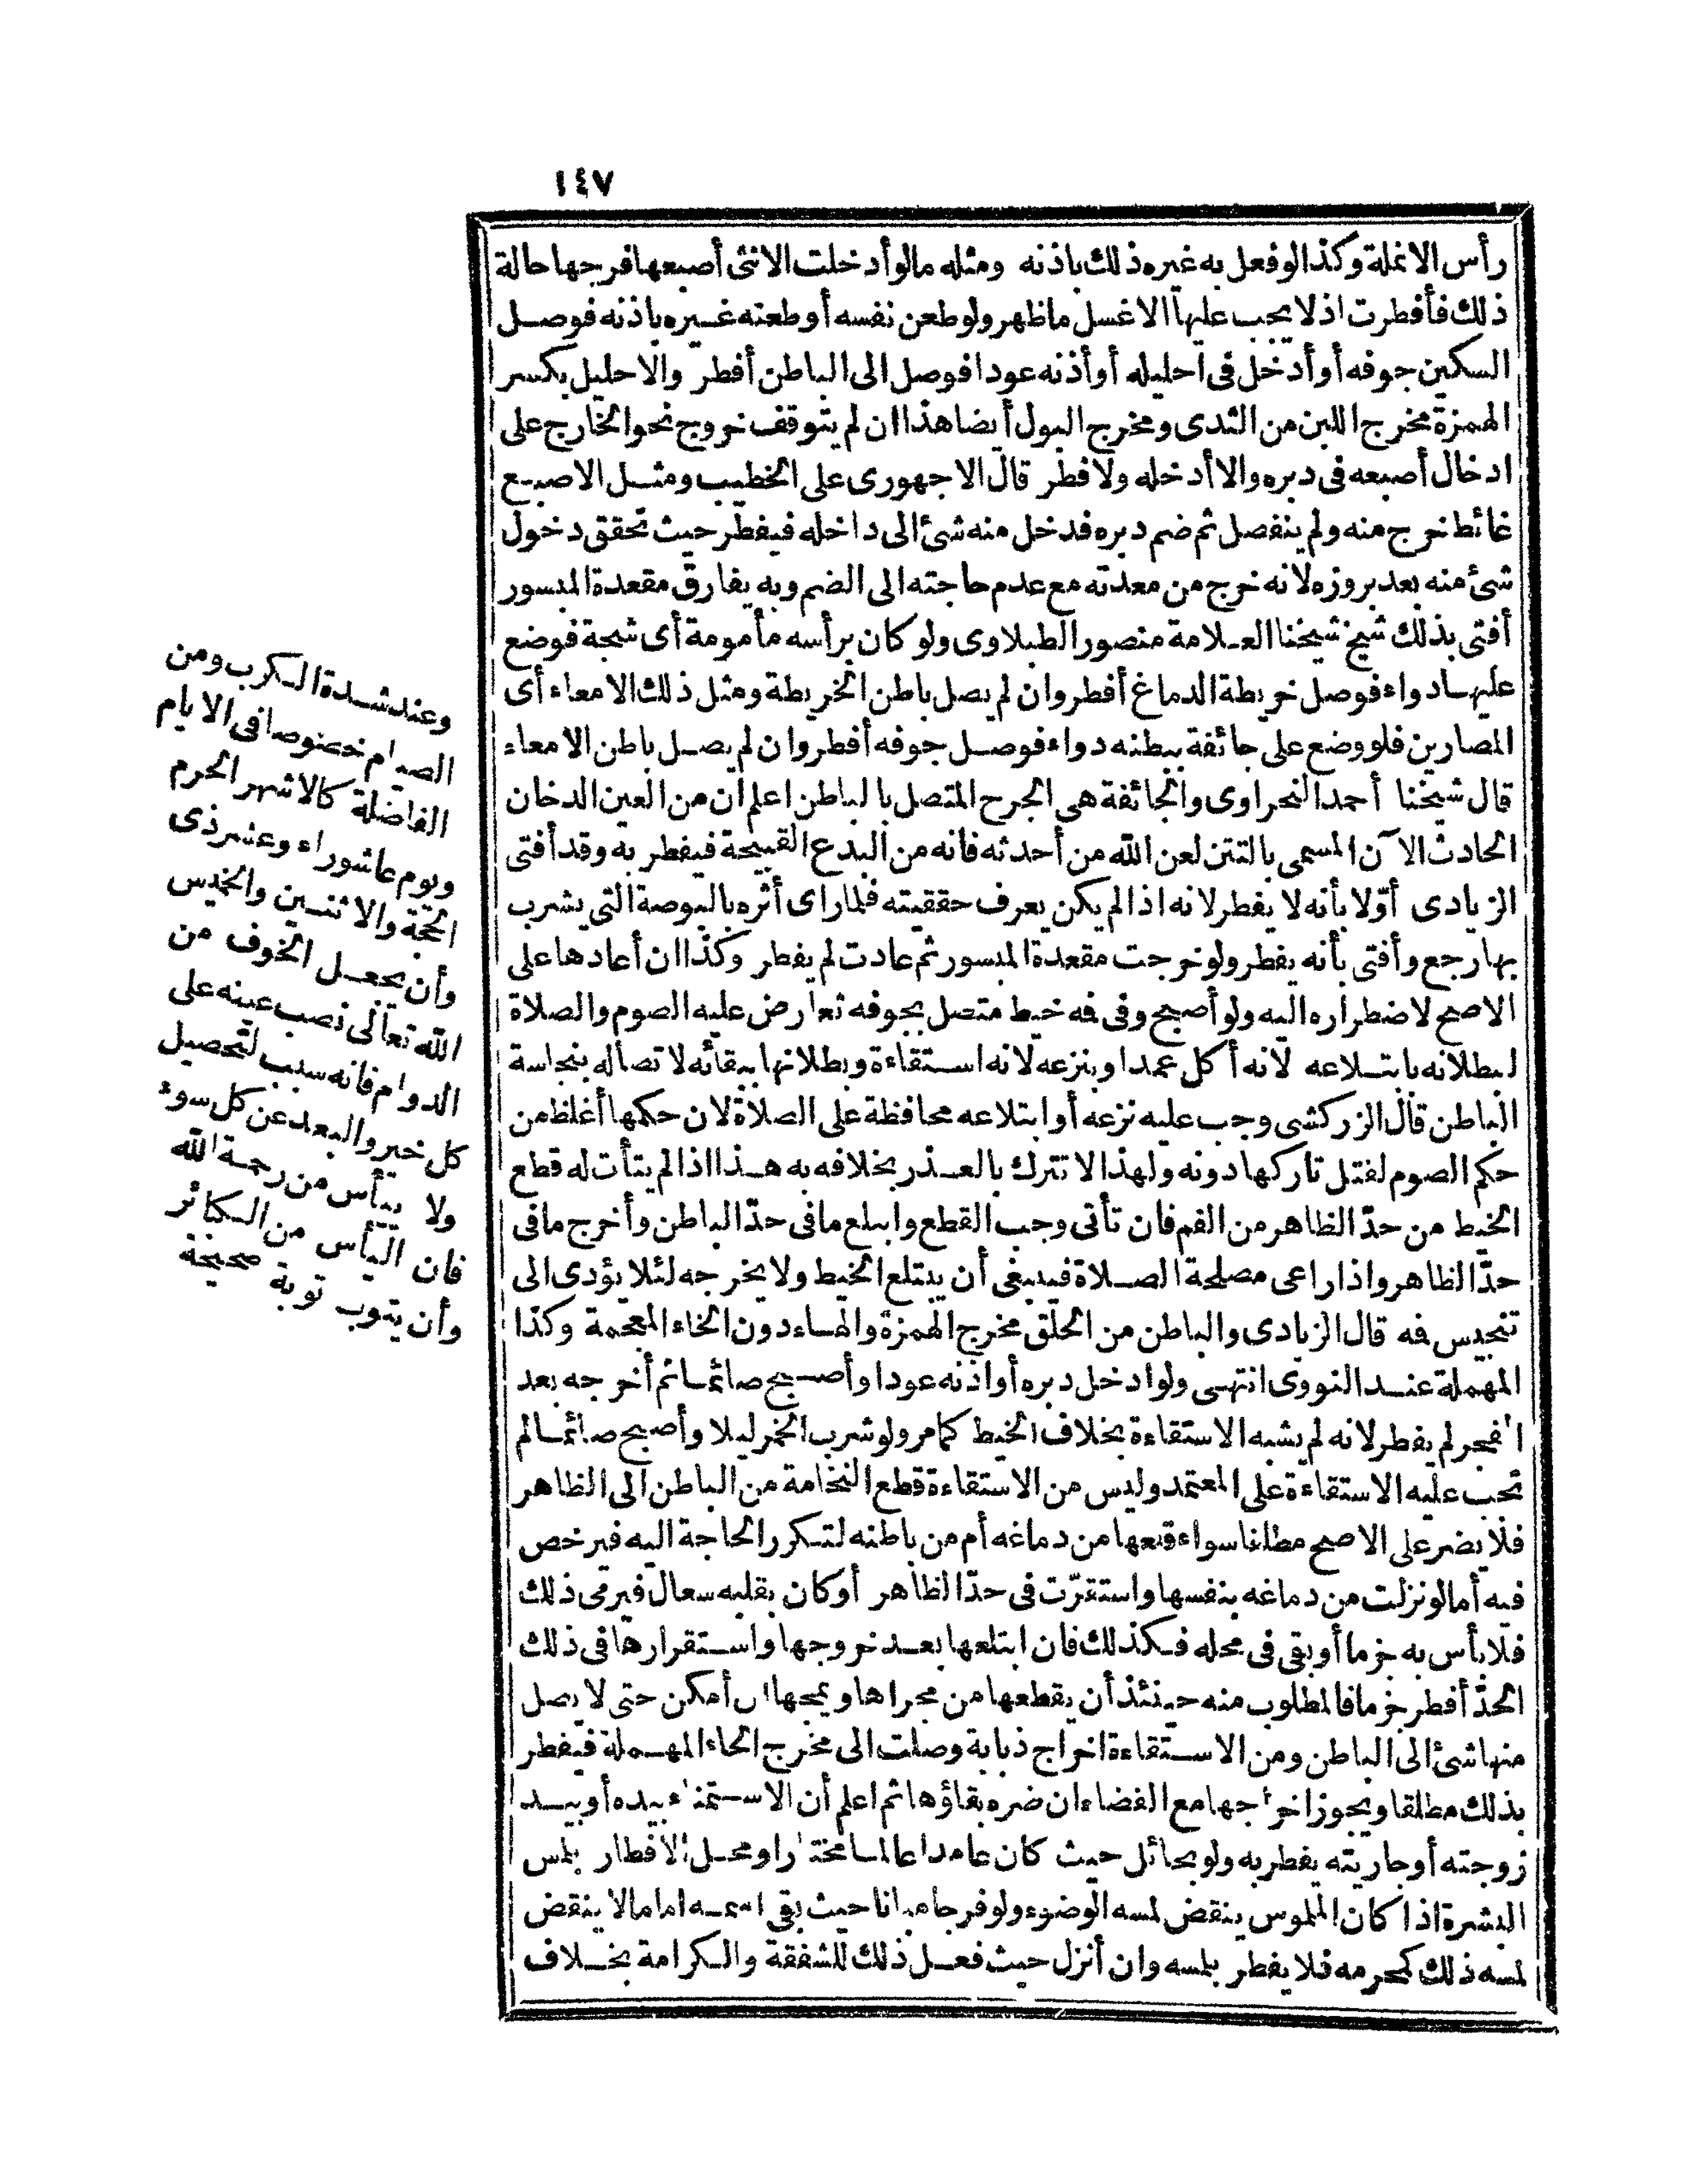 ١٤٧
رأس الانملة وكذا لو فعل به غيره ذلك باذنه ومثله مالو أدخلت الانثى أصبعها فرجها حالة
ذلك فأفطرت اذ لا يجب عليها الا غسل ما ظهر ولو طعن نفسه أو طعنه غيره باذنه فوصل
السكين جوفه أو أدخل فى احليله أو أذنه عودا فوصل الى الباطن أفطر والاحليل بكسر
الهمزة مخرج اللبن من الثدى ومخرج البول أيضا هذا ان لم يتوقف خروج نحو الخارج على
ادخال أصبعه فى دبره والا أدخله ولا فطر قال الاجهورى على الخطيب ومثل الاصبع
غائط خرج منه ولم ينفصل ثم ضم دبره فدخل منه شئ الى داخله فيفطر حيث تحقق دخول
شئ منه بعد بروزه لانه خرج من معدته مع عدم حاجته الى الضم وبه يفارق مقعدة المبسور
أفتى بذلك شيخ شيخنا العلامة منصور الطبلاوى ولو كان برأسه مأمومة أى شجة فوضع
عليها دواء فوصل خريطة الدماغ أفطر وان لم يصل باطن الخريطة ومثل ذلك الامعاء أى
المصارين فلو وضع على جائفة ببطنه دواء فوصل جوفه أفطر وان لم يصل باطن الامعاء
قال شيخنا أحمد النحراوى والجائفة هى الجرح المتصل بالباطن اعلم أن من العين الدخان
الحادث الآن المسمى بالتتن لعن الله من أحدثه فانه من البدع القبيحة فيفطر به وقد أفتى
الزيادى أوّلا بأنه لا يفطر لانه اذا لم يكن يعرف حقيقته فلما راى أثره بالبوصة التى يشرب
بها رجع وأفتى بأنه يفطر ولو خرجت مقعدة المبسور ثم عادت لم يفطر وكذا ان أعادها على
الاصح لاضطراره اليه ولو أصبح وفى فه خيط متصل بجوفه تعارض عليه الصوم والصلاة
لبطلانه بابتلاعه لانه أكل عمدا وبنزعه لانه استقاءة وبطلانها ببقائه لاتصاله بنجاسة
الباطن قال الزركشى وجب عليه نزعه أو ابتلاعه محافظة على الصلاة لان حكمها أغلظ من
حكم الصوم لقتل تاركها دونه ولهذا لا تترك بالعذر بخلافه به هذا اذا لم يتأت له قطع
الخيط من حدّ الظاهر من الفم فان تأتى وجب القطع وابلع ما فى حدّ الباطن وأخرج ما فى
حدّ الظاهر واذا راعى مصلحة الصلاة فينبغى أن يبتلع الخيط ولا يخرجه لئلا يؤدى الى
تنجيس فه قال الزيادى والباطن من الحلق مخرج الهمزة والهاء دون الخاء المعجمة وكذا
المهملة عند النووى انتهى ولو ادخل دبره أو اذنه عودا وأصبح صائما ثم أخرجه بعد
الفجر لم يفطر لانه لم يشبه الاستقاءة بخلاف الخيط كما مر ولو شرب الخمر ليلا وأصبح صائما لم
تجب عليه الاستقاءة على المعتمد وليس من الاستقاءة قطع النخامة من الباطن الى الظاهر
فلا يضر على الاصح مطلقا سواء قلعها من دماغه أم من باطنه لتكرر الحاجة اليه فيرخص
فيه أما لو نزلت من دماغه بنفسها واستقرّت فى حدّ الظاهر أو كان بقلبه سعال فيرمى ذلك
فلا بأس به جزما أو بقى فى محله فكذلك فان ابتلعها بعد خروجها واستقرارها فى ذلك
الحدّ أفطر جزما فالمطلوب منه حينئذ أن يقطعها من مجراها ويمجها ان أمكن حتى لا يصل
منها شئ الى الباطن ومن الاستقاءة اخراج ذبابة وصلت الى مخرج الحاء المهملة فيفطر
بذلك مطلقا ويجوز اخراجها مع القضاء ان ضره بقاؤها ثم اعلم أن الاستمناء بيده أو بيد
زوجته أو جاريته يفطر به ولو بحائل حيث كان عامدا عالما مختارا ومحل الافطار بلمس
البشرة اذا كان الملموس ينقض لمسه الوضوء ولو فرجا مبانا حيث بقى اسمه اما ما لا ينقض
لمسه ذلك كمحرمه فلا يفطر بلمسه وان أنزل حيث فعل ذلك للشفقة والكرامة بخلاف
وعند شدة الكرب ومن
الصيام خصوصا فى الايام
الفاضلة كالاشهر الحرم
ويوم عاشوراء وعشر ذى
الحجة والاثنين والخميس
وأن يجعل الخوف من
الله تعالى نصب عينه على
الدوام فانه سبب لتحصيل
كل خير والبعد عن كل سوء
ولا ييأس من رحمة الله
فان اليأس من الكبائر
وأن يتوب توبة صحيحة